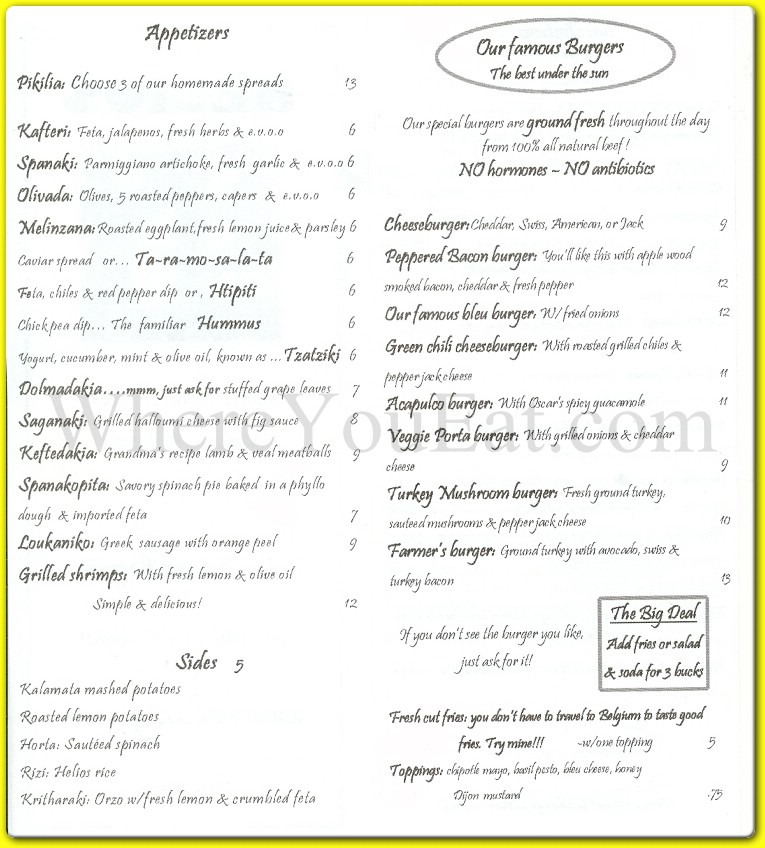 Appetizers
Pikilia: Choose 3 of our homemade spreads 13
Kafteri: Feta, jalapenos, fresh herbs & e.v.o.o 6
Spanaki: Parmiggiano artichoke, fresh garlic & e.v.o.o 6
Olivada: Olives, 5 roasted peppers, capers & e.v.o.o 6
Melinzana: Roasted eggplant, fresh lemon juice & parsley 6
Caviar spread or... Ta~ra~mo~sa~la~ta 6
Feta, chiles & red pepper dip or, Htipiti 6
Chick pea dip... The familiar Hummus 6
Yogurt, cucumber, mint & olive oil, known as ...Tzatziki 6
Dolmadakia....mmm, just ask for stuffed grape leaves 7
Saganaki: Grilled halloumi cheese with fig sauce 8
Keftedakia: Grandma's recipe lamb & veal meatballs 9
Spanakopita: Savory spinach pie baked in a phyllo
dough & imported feta 7
Loukaniko: Greek sausage with orange peel 9
Grilled shrimps: With fresh lemon & olive oil
Simple & delicious! 12
Sides 5
Kalamata mashed potatoes
Roasted lemon potatoes
Horta: Sautéed spinach
Rizi: Helios rice
Kritharaki: Orzo w/fresh lemon & crumbled feta
Our famous Burgers
The best under the sun
Our special burgers are ground fresh throughout the day
from 100% all natural beef!
NO hormones ~ NO antibiotics
Cheeseburger: Cheddar, Swiss, American, or Jack 9
Peppered Bacon burger: You'll like this with apple wood
smoked bacon, cheddar & fresh pepper 12
Our famous bleu burger: W/ fried onions 12
Green chili cheeseburger: With roasted grilled chiles &
pepper jack cheese 11
Acapulco burger: With Oscar's spicy guacamole 11
Veggie Porta burger: With grilled onions & cheddar
cheese 9
Turkey Mushroom burger: Fresh ground turkey,
sauteed mushrooms & pepper jack cheese 10
Farmer's burger: Ground turkey with avocado, swiss &
turkey bacon 13
If you don't see the burger you like,
just ask for it!
The Big Deal
Add fries or salad
& soda for 3 bucks
Fresh cut fries: you don't have to travel to Belgium to taste good
fries. Try mine!!! ~w/one topping 5
Toppings: chipotle mayo, basil pesto, bleu cheese, honey
Dijon mustard .75
WhereYouEat.com